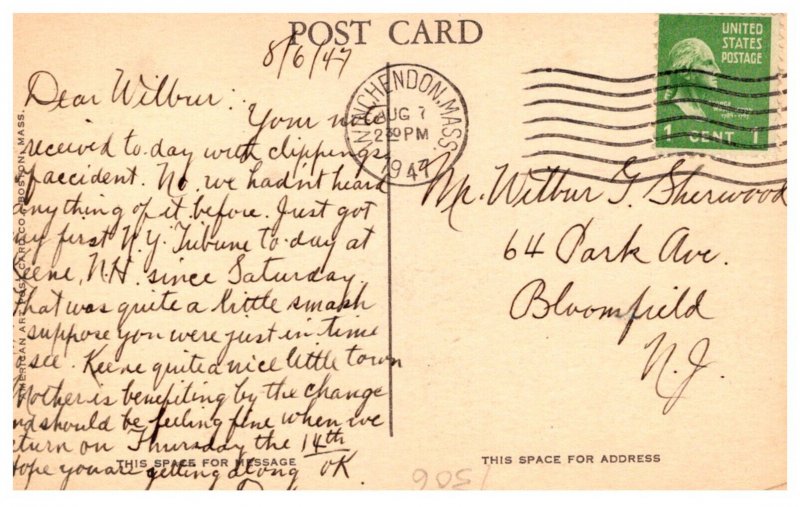 POST CARD
8/6/47
Dear Wilbur:
Your note
received to-day with clippings
of accident. No, we hadn't heard
anything of it before. Just got
my first N.Y. Tribune to-day at
Keene, N.H. since Saturday
That was quite a little smash
suppose you were just in time
to see. Keene quite a nice little town
Mother is benefiting by the change
and should be feeling fine when we
return on Thursday the 14th
Hope you are getting along OK
THIS SPACE FOR MESSAGE
AMERICAN ART POST CARD CO., BOSTON, MASS.
WINCHENDON, MASS.
AUG 7
2 30 PM
1947
UNITED
STATES
POSTAGE
1 CENT 1
Mr. Wilbur G. Sherwood
64 Park Ave.
Bloomfield
N.J.
THIS SPACE FOR ADDRESS